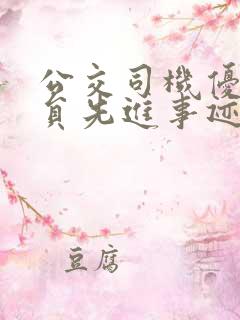 公交司機優
員先進事迹
豆腐